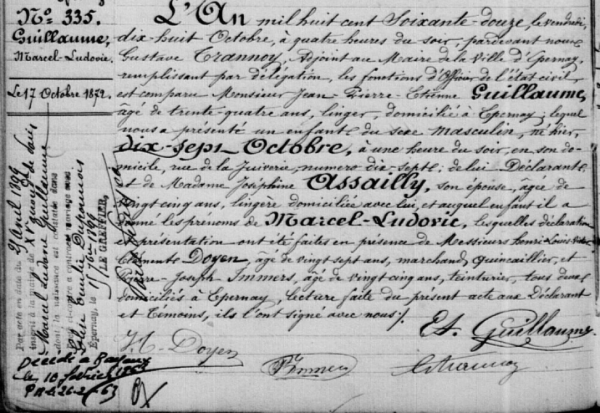 N.º 335.
Guillaume,
Marcel-Ludovic.
Le 17 Octobre 1872.
L'An mil huit cent Soixante-douze, le vendredi
dix-huit Octobre, à quatre heures du soir, pardevant nous
Gustave Trannoy, Adjoint au Maire de la Ville d'Epernay,
remplissant par délégation, les fonctions d'Officier de l'état civil,
est comparu Monsieur Jean Pierre-Etienne Guillaume,
âgé de trente-quatre ans, linger, domicilié à Epernay; lequel
nous a présenté un enfant du sexe masculin, né hier,
dix-sept Octobre, à une heure du soir, en son do-
micile, rue de la Juiverie, numéro dix-sept; de lui Déclarant
et de Madame Joséphine Assailly, son épouse, âgée de
vingt cinq ans, lingère domiciliée avec lui, et auquel enfant il a
donné les prénoms de Marcel-Ludovic, lesquelles déclaration
et présentation ont été faites en présence de Messieurs Henri Louis
Doyen, âgé de vingt sept ans, marchand quincaillier, et
Pierre-Joseph Immers, âgé de vingt cinq ans, teinturier, tous deux
domiciliés à Epernay; lecture faite du présent acte aux Déclarant
et Témoins, ils l'ont signé avec nous./.
Et. Guillaume
H. Doyen
P. Immers
G. Trannoy
Par acte en date du 9 Avril 1899
inscrit à la mairie de
Marcel Ludovic Guillaume
dont la naissance est constatée dans
Epernay, le
LE GREFFIER,
Décédé à
le 10 février 1963